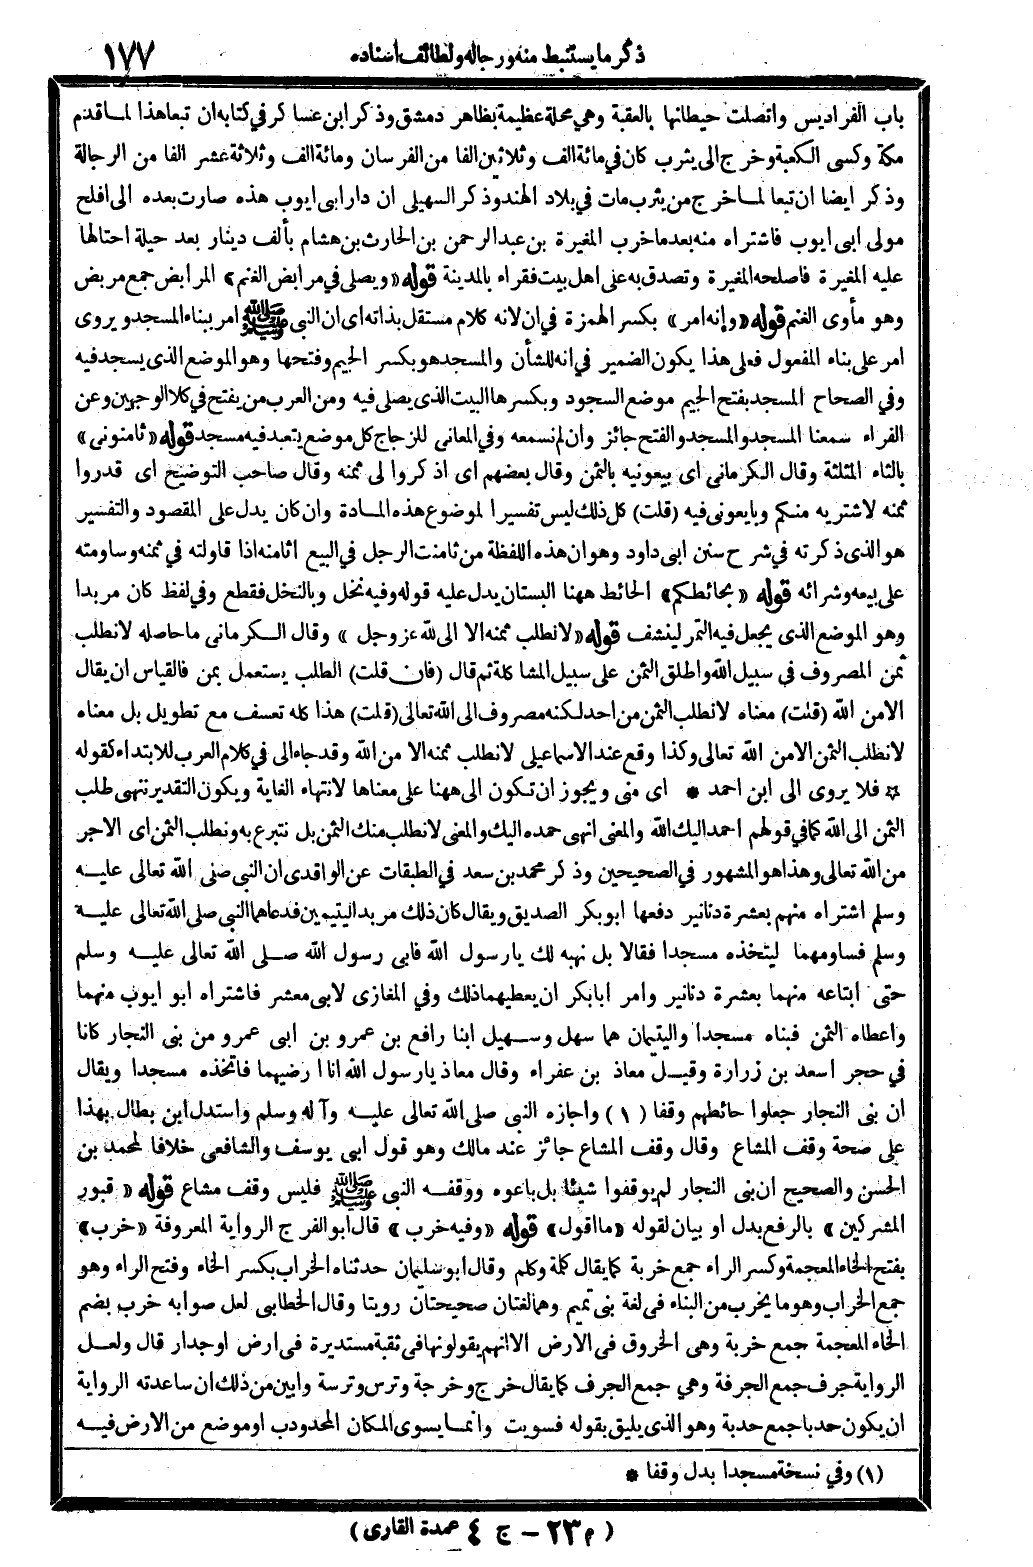 ذكر ما يستنبط منه ورجاله ولطائف أسناده ١٧٧
باب الفراديس واتصلت حيطانها بالعقبة وهي محلة عظيمة بظاهر دمشق وذكر ابن عساكر في كتابه ان تبعا هذا لما قدم
مكة وكسى الكعبة وخرج الى يثرب كان في مائة الف وثلاثين الفا من الفرسان ومائة الف وثلاثة عشر الفا من الرجالة
وذكر ايضا ان تبعا لما خرج من يثرب مات في بلاد الهند وذكر السهيلى ان دار ابى ايوب هذه صارت بعده الى افلح
مولى ابى ايوب فاشتراه منه بعد ما خرب المغيرة بن عبد الرحمن بن الحارث بن هشام بألف دينار بعد حيلة احتالها
عليه المغيرة فاصلحه المغيرة وتصدق به على اهل بيت فقراء بالمدينة قوله «ويصلى في مرابض الغنم» المرابض جمع مربض
وهو مأوى الغنم قوله «وإنه امر» بكسر الهمزة في ان لانه كلام مستقل بذاته اى ان النبى ﷺ امر ببناء المسجد ويروى
امر على بناء المفعول فعلى هذا يكون الضمير في انه للشأن والمسجد هو بكسر الجيم وفتحها وهو الموضع الذى يسجد فيه
وفي الصحاح المسجد بفتح الجيم موضع السجود وبكسرها البيت الذى يصلى فيه ومن العرب من يفتح في كلا الوجهين وعن
الفراء سمعنا المسجد والمسجد والفتح جائز وان لم نسمعه وفي المعانى للزجاج كل موضع يتعبد فيه مسجد قوله «ثامنونى»
بالثاء المثلثة وقال الكرمانى اى بيعونيه بالثمن وقال بعضهم اى اذكروا لى ثمنه وقال صاحب التوضيح اى قدروا
ثمنه لاشتريه منكم وبايعونى فيه (قلت) كل ذلك ليس تفسيرا لموضوع هذه المادة وان كان يدل على المقصود والتفسير
هو الذى ذكرته في شرح سنن ابى داود وهو ان هذه اللفظة من ثامنت الرجل في البيع اثامنه اذا قاولته في ثمنه وساومته
على بيعه وشرائه قوله «بحائطكم» الحائط ههنا البستان يدل عليه قوله وفيه نخل وبالنخل فقطع وفي لفظ كان مربدا
وهو الموضع الذى يجعل فيه التمر لينشف قوله «لا نطلب ثمنه الا الى لله عز وجل» وقال الكرمانى ما حاصله لا نطلب
ثمن المصروف في سبيل الله واطلق الثمن على سبيل المشاكلة ثم قال (فان قلت) الطلب يستعمل بمن فالقياس ان يقال
الا من الله (قلت) معناه لا نطلب الثمن من احد لكنه مصروف الى الله تعالى (قلت) هذا كله تعسف مع تطويل بل معناه
لا نطلب الثمن الا من الله تعالى وكذا وقع عند الاسماعيلى لا نطلب ثمنه الا من الله وقد جاء الى في كلام العرب للابتداء كقوله
☆ فلا يروى الى ابن احمد * اى منى ويجوز ان تكون الى ههنا على معناها لانتهاء الغاية ويكون التقدير ننهى طلب
الثمن الى الله كما في قولهم احمد اليك الله والمعنى انهى حمده اليك والمعنى لا نطلب منك الثمن بل نتبرع به ونطلب الثمن اى الاجر
من الله تعالى وهذا هو المشهور في الصحيحين وذكر محمد بن سعد في الطبقات عن الواقدى ان النبى صلى الله تعالى عليه
وسلم اشتراه منهم بعشرة دنانير دفعها ابو بكر الصديق ويقال كان ذلك مربدا ليتيمين فدعاهما النبى صلى الله تعالى عليه
وسلم فساومهما ليتخذه مسجدا فقالا بل نهبه لك يا رسول الله فابى رسول الله صلى الله تعالى عليه وسلم
حتى ابتاعه منهما بعشرة دنانير وامر ابا بكر ان يعطيهما ذلك وفي المغازى لابى معشر فاشتراه ابو ايوب منهما
واعطاه الثمن فبناه مسجدا واليتيمان هما سهل وسهيل ابنا رافع بن عمرو بن ابى عمرو من بنى النجار كانا
في حجر اسعد بن زرارة وقيل معاذ بن عفراء وقال معاذ يا رسول الله انا ارضيهما فاتخذه مسجدا ويقال
ان بنى النجار جعلوا حائطهم وقفا (١) واجازه النبى صلى الله تعالى عليه وآله وسلم واستدل ابن بطال بهذا
على صحة وقف المشاع وقال وقف المشاع جائز عند مالك وهو قول ابى يوسف والشافعى خلافا لمحمد بن
الحسن والصحيح ان بنى النجار لم يوقفوا شيئا بل باعوه ووقفه النبى ﷺ فليس وقف مشاع قوله «قبور
المشركين» بالرفع بدل او بيان لقوله «ما اقول» قوله «وفيه خرب» قال ابو الفرج الرواية المعروفة «خرب»
بفتح الخاء المعجمة وكسر الراء جمع خربة كما يقال كلمة وكلم وقال ابو سليمان حدثناه الخراب بكسر الخاء وفتح الراء وهو
جمع الخراب وهو ما يخرب من البناء فى لغة بنى تميم وهما لغتان صحيحتان رويتا وقال الخطابى لعل صوابه خرب بضم
الخاء المعجمة جمع خربة وهى الخروق فى الارض الا انهم يقولونها فى ثقبة مستديرة فى ارض او جدار قال ولعل
الرواية جرف جمع الجرفة وهي جمع الجرف كما يقال خرج وخرجة وترس وترسة وابين من ذلك ان ساعدته الرواية
ان يكون حدبا جمع حدبة وهو الذى يليق بقوله فسويت وانما يسوى المكان المحدودب او موضع من الارض فيه
(١) وفي نسخة مسجدا بدل وقفا *
(م ٢٣ - ج ٤ عمدة القارى)